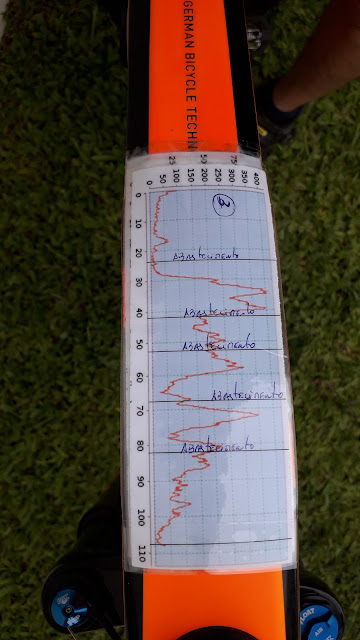 GERMAN BICYCLE TECHN
0 50 100 150 200 250 300 350 400
0
10
20
30
40
50
60
70
80
90
100
110
2
Abastecimento
Abastecimento
Abastecimento
Abastecimento
Abastecimento
FLOAT